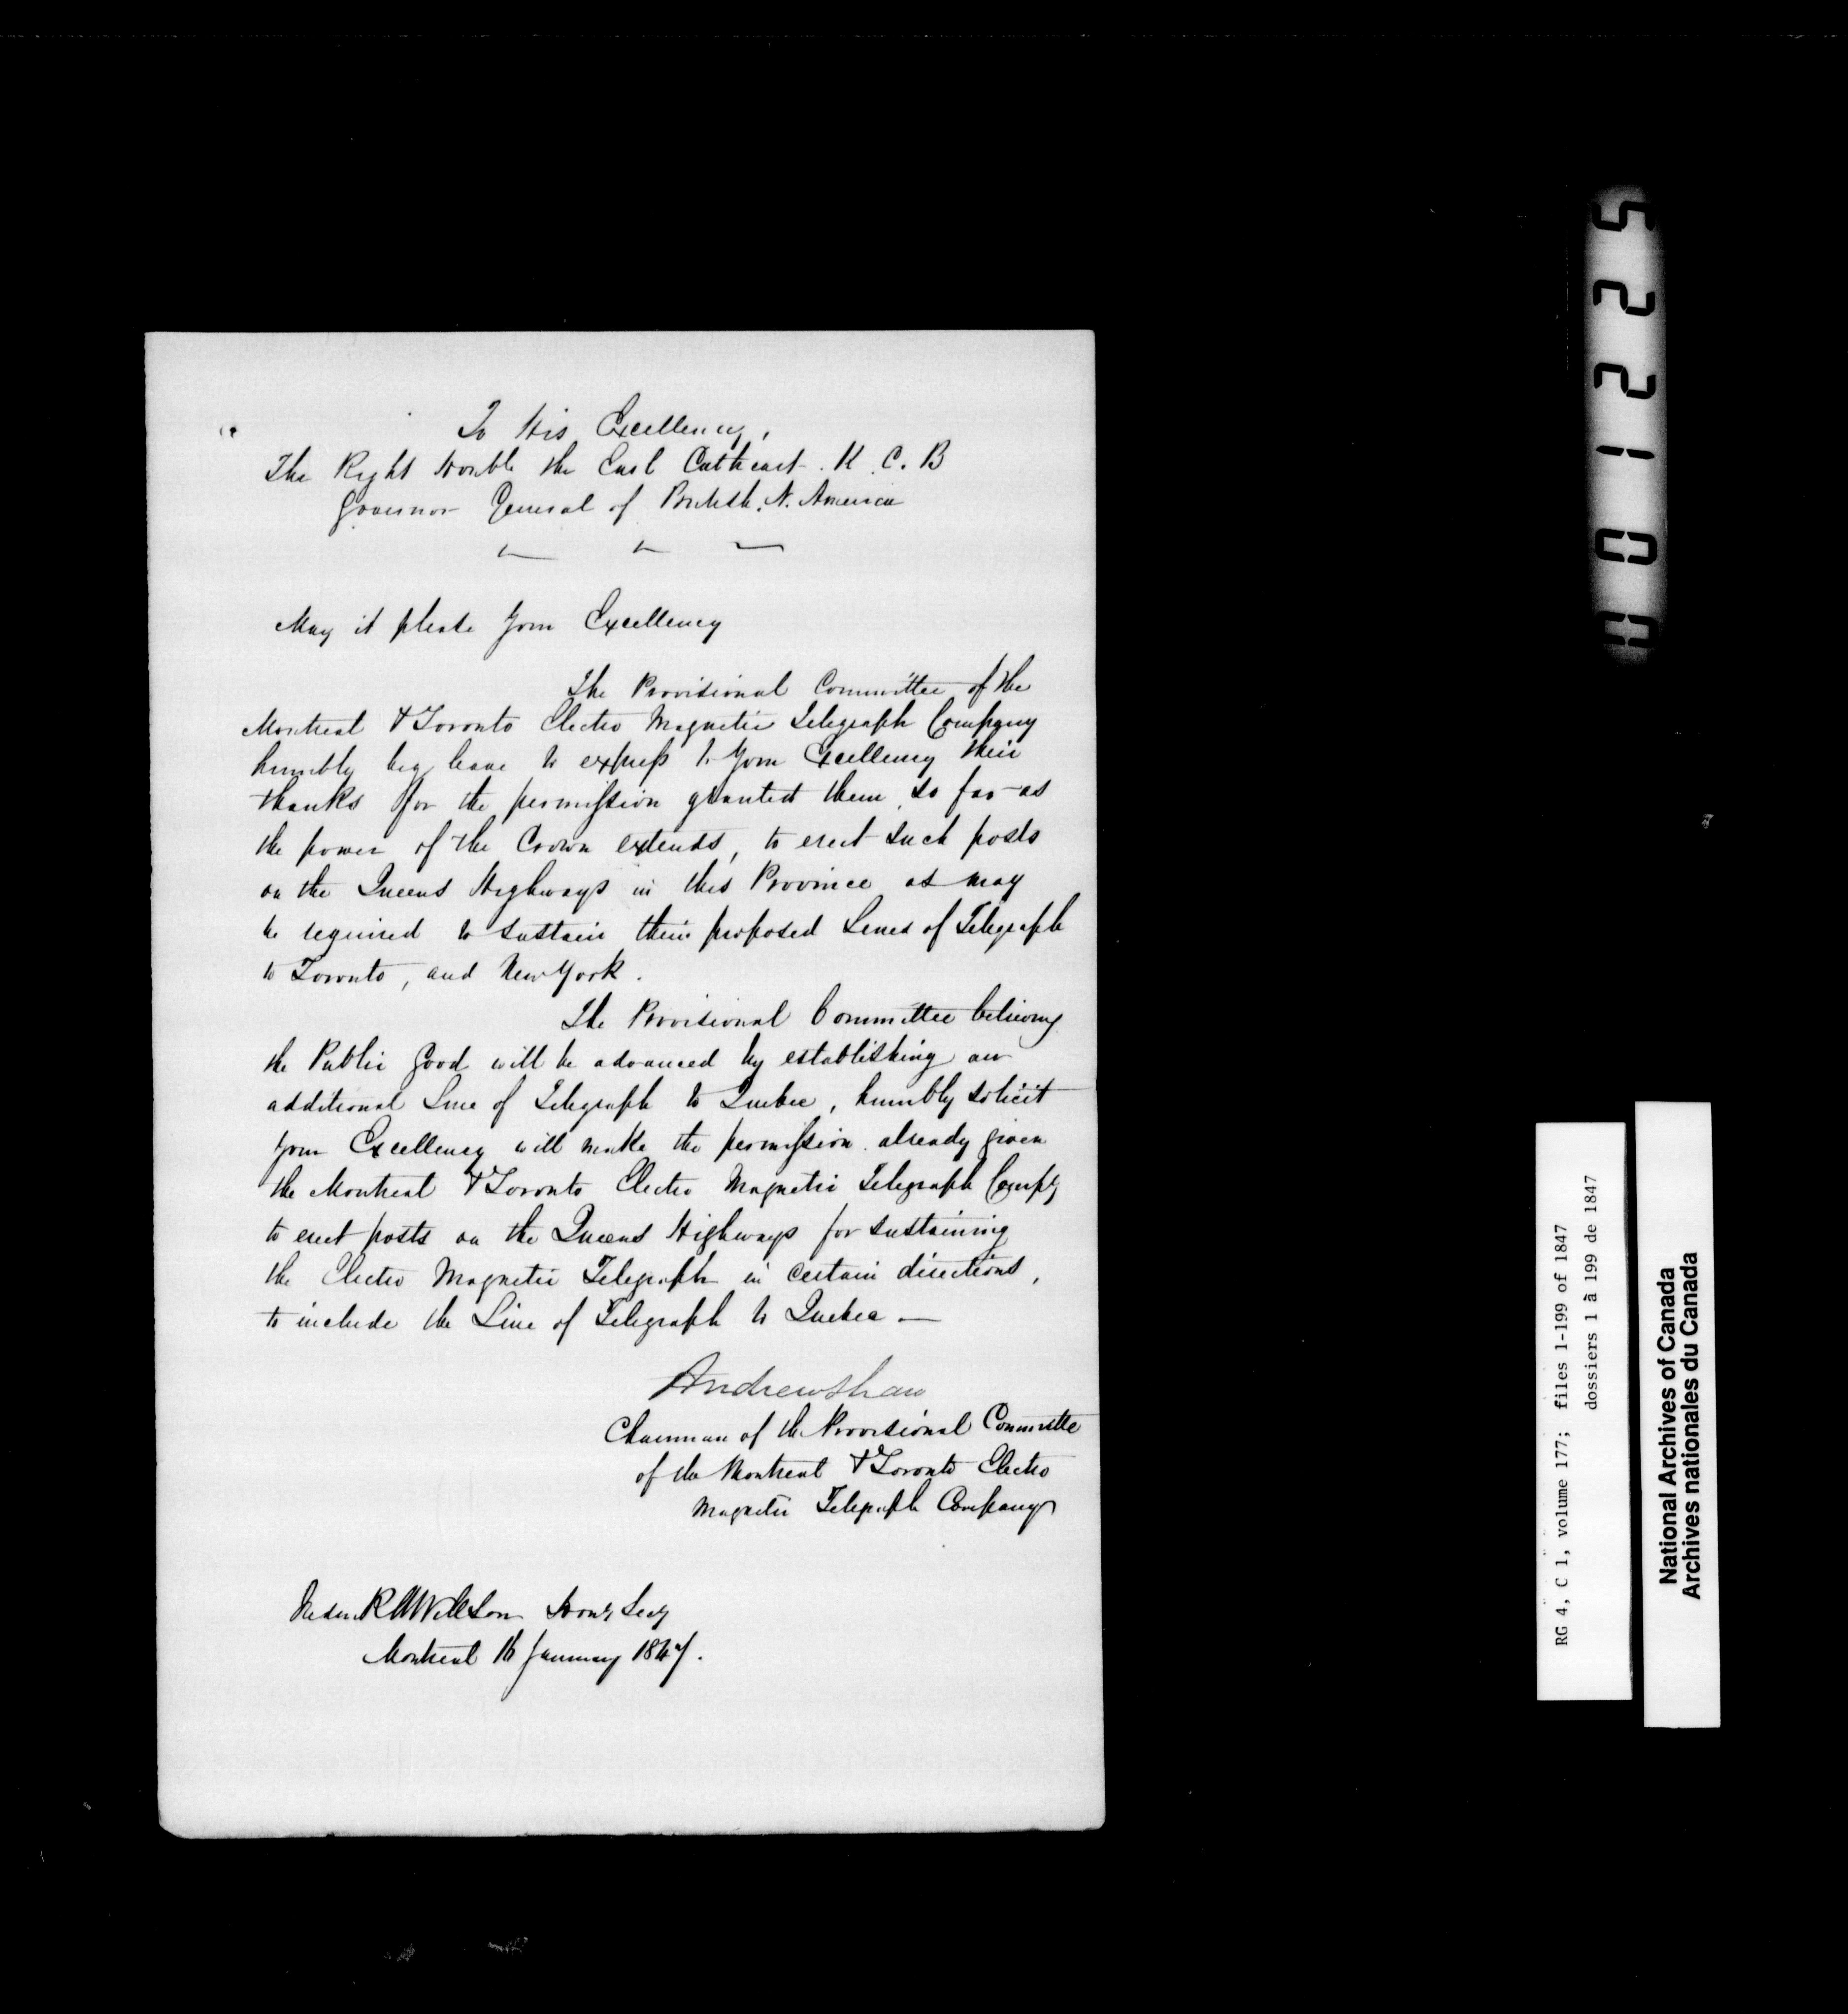 To His Excellency,
The Right Honble the Earl Cathcart. K. C. B
Governor General of British. N. America
May it please Your Excellency
The Provisional Committee of the
Montreal & Toronto Electro Magnetic Telegraph Company
humbly beg leave to express to Your Excellency their
thanks for the permission granted them so far as
the power of the Crown extends, to erect such posts
on the Queens Highways in this Province as may
be required to sustain their proposed Lines of Telegraph
to Toronto, and New York.
The Provisional Committee believing
the Public Good will be advanced by establishing an
additional Line of Telegraph to Quebec, humbly solicit
your Excellency will make the permission already given
the Montreal & Toronto Electro Magnetic Telegraph Compy
to erect posts on the Queens Highways for sustaining
the Electro Magnetic Telegraph in certain directions,
to include the Line of Telegraph to Quebec —
Andrew Shaw
Chairman of the Provisional Committee
of the Montreal & Toronto Electro
Magnetic Telegraph Company
Willson Hony Secy
Montreal 16 January 1847.
H01225
RG 4, C 1, volume 177; files 1-199 of 1847
dossiers 1 à 199 de 1847
National Archives of Canada
Archives nationales du Canada